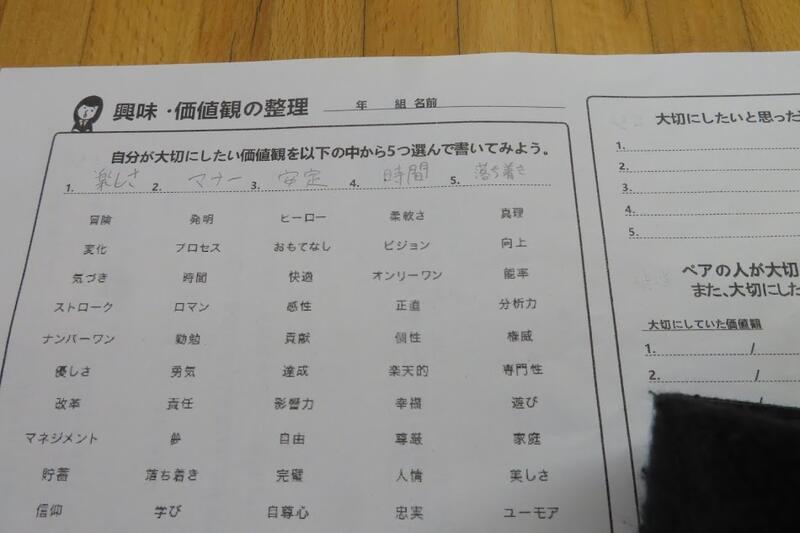 興味・価値観の整理 年 組 名前
自分が大切にしたい価値観を以下の中から5つ選んで書いてみよう。
1. 楽しさ 2. マナー 3. 安定 4. 時間 5. 落ち着き
冒険 発明 ヒーロー 柔軟さ 真理
変化 プロセス おもてなし ビジョン 向上
気づき 時間 快適 オンリーワン 能率
ストローク ロマン 感性 正直 分析力
ナンバーワン 勤勉 貢献 個性 権威
優しさ 勇気 達成 楽天的 専門性
改革 責任 影響力 幸福 遊び
マネジメント 夢 自由 尊厳 家庭
貯蓄 落ち着き 完璧 人情 美しさ
信仰 学び 自尊心 忠実 ユーモア
大切にしたいと思った
1.
2.
3.
4.
5.
ペアの人が大切
また、大切にした
大切にしていた価値観
1. /
2. /